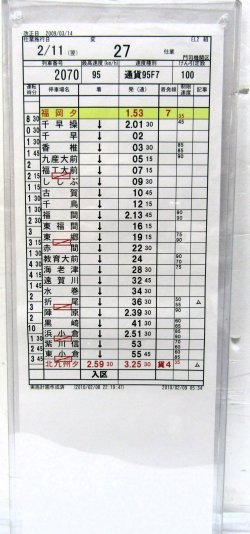 改正日 2009/03/14
仕業施行日 変 EL2 組
2/11 (翌) 27 仕業 門司機関区
列車番号 最高速度(km/h) 速度種別 けん引定数
2070 95 通貨95F7 100
運転時分 停車場名 着 発(通) 着発線 制限速度 記事
福岡夕 1.53 7 35
8 30 千早操 ↓ 2.01 30 45
千早 ↓ 02
香椎 ↓ 03 30
九産大前 ↓ 05 15
福工大前 ↓ 07 15
ししぶ ↓ 09 30
古賀 ↓ 10 45
千鳥 ↓ 12 15
福間 ↓ 2.13 45
東福間 ↓ 16 15
東郷 ↓ 19 15
赤間 ↓ 22 30
教育大前 ↓ 24
海老津 ↓ 28 30
遠賀川 ↓ 32 45
水巻 ↓ 34 30
折尾 ↓ 36 30 △
陣原 ↓ 2.39 30
黒崎 ↓ 41 30
浜小倉 ↓ 2.51 30
紫川信 ↓ 53
東小倉 ↓ 55 45
3 45 北九州夕 2.59 30 3.25 30 貨4 △
入区
実施計画作成済 (2010/02/08 22:19:47) 2010/02/09 05:34